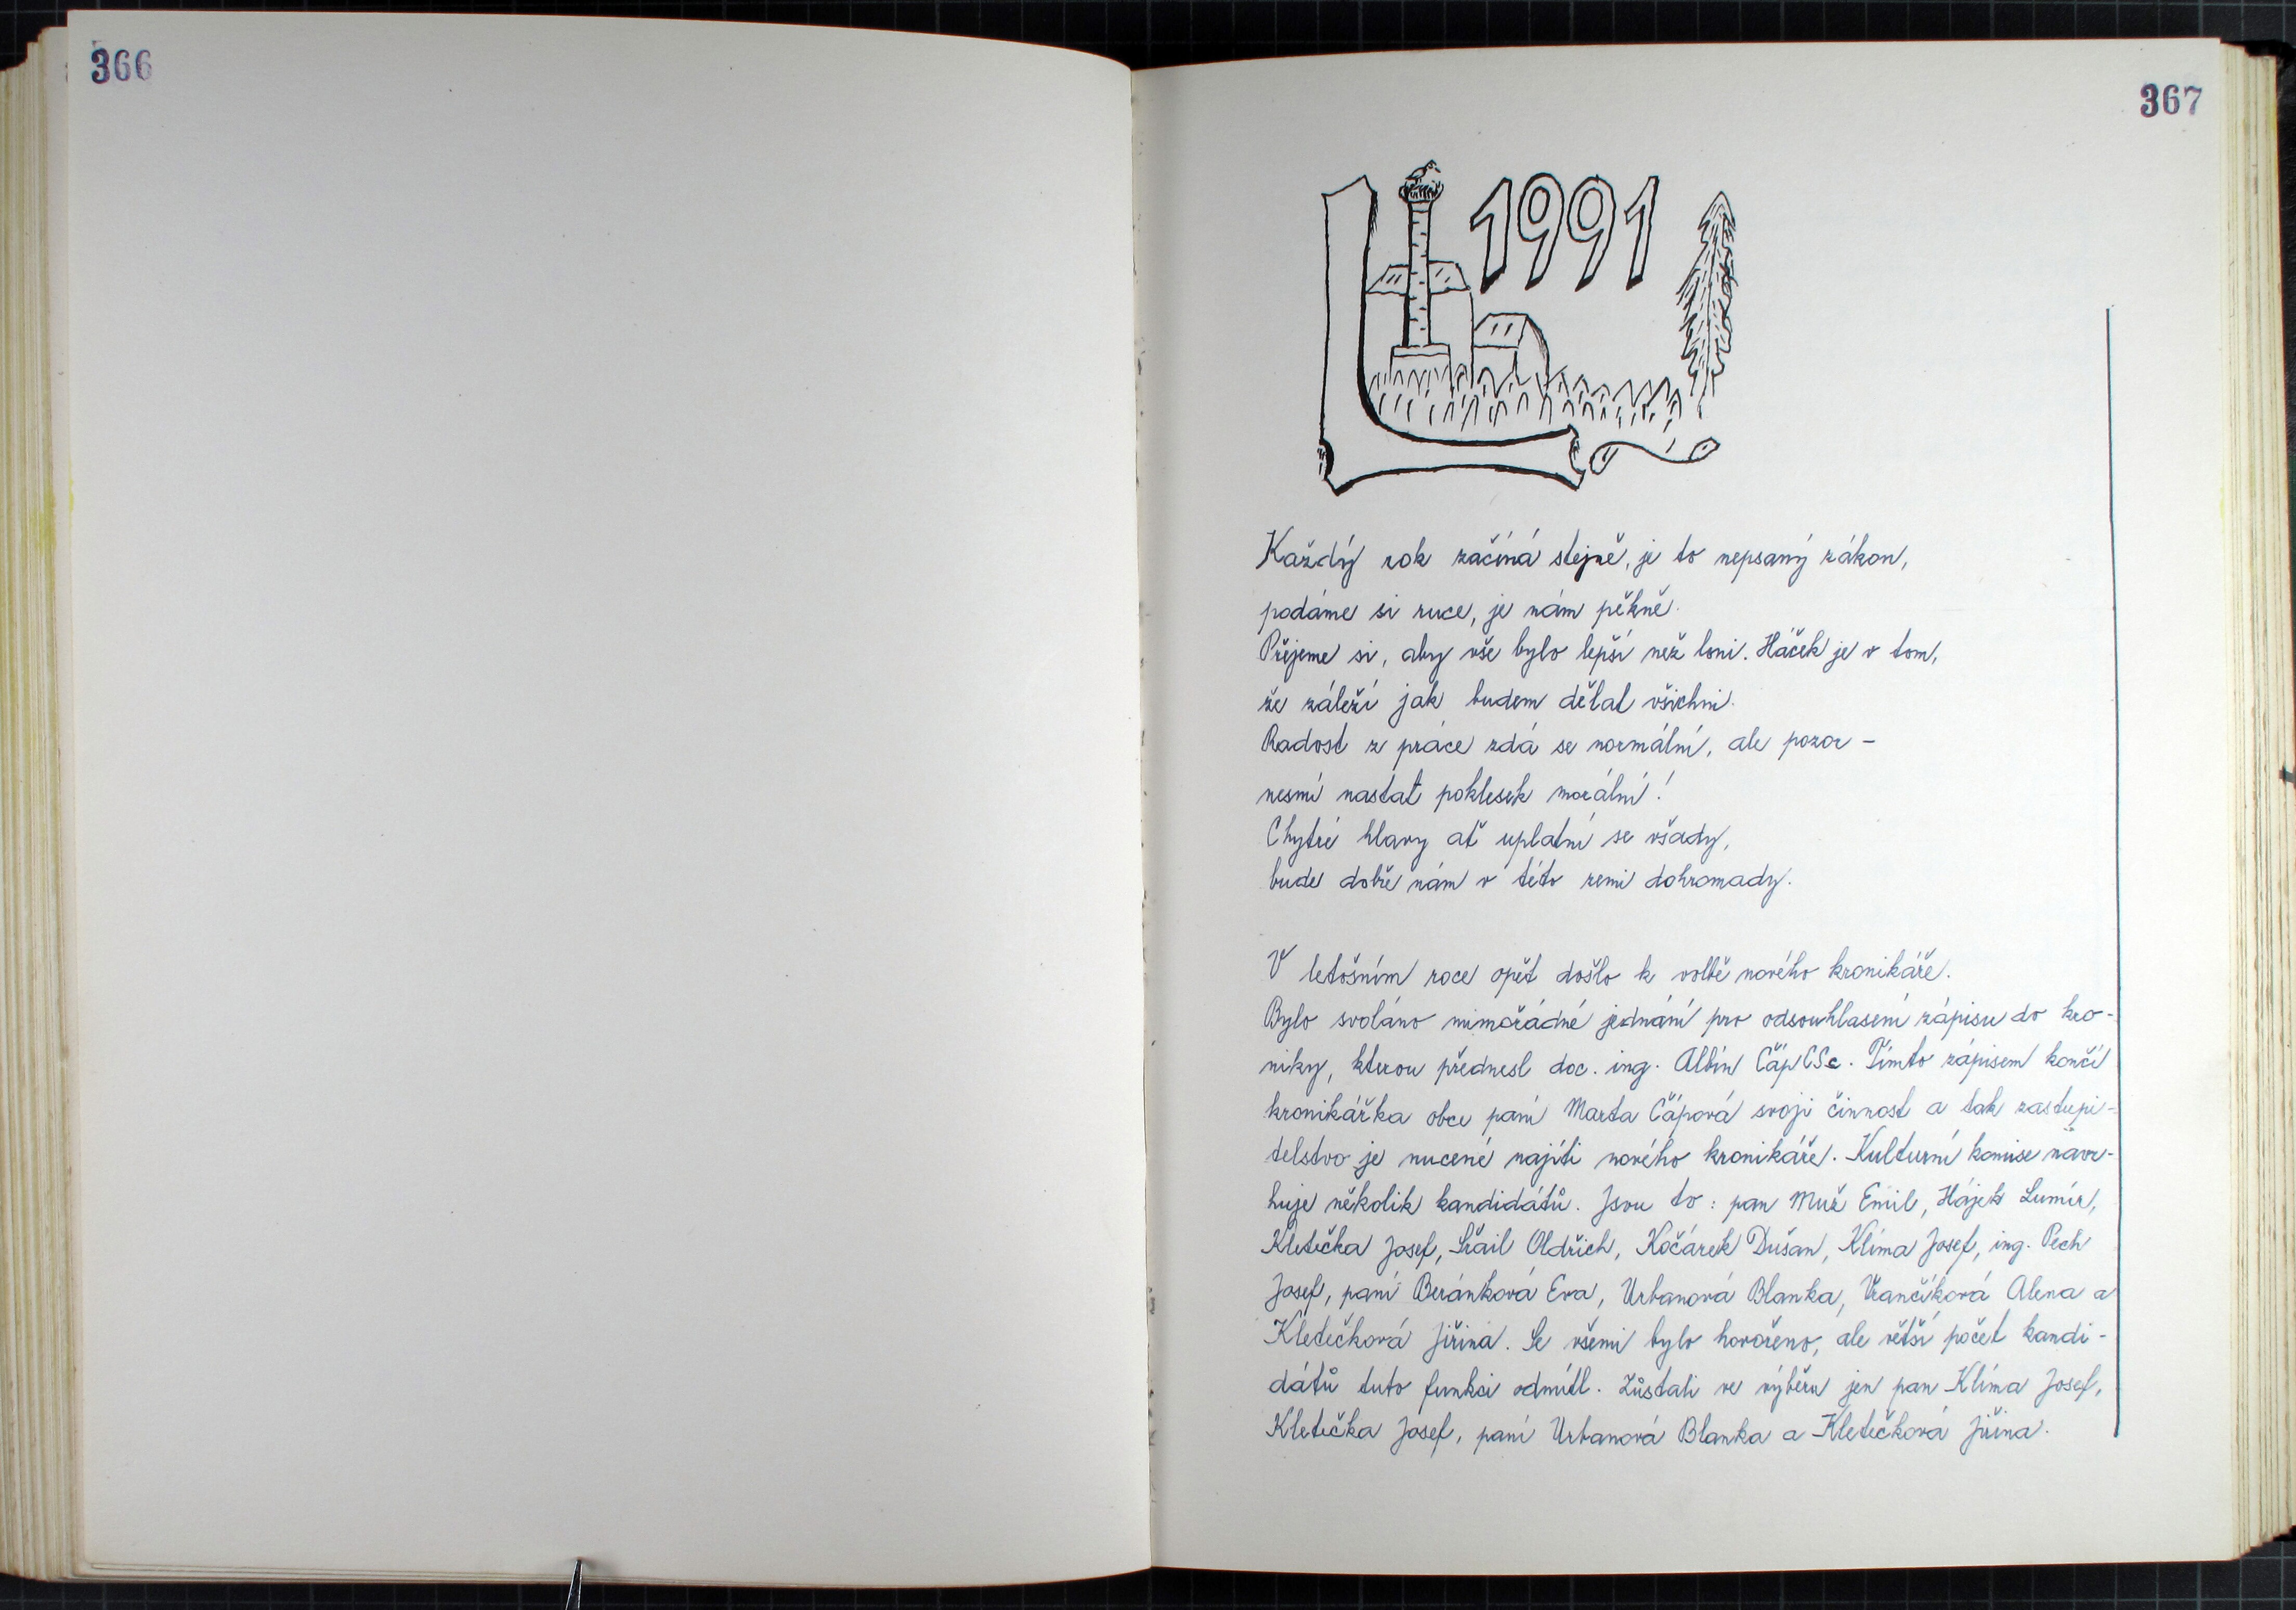 366
367
1991
Každý rok začíná stejně, je to nepsaný zákon,
podáme si ruce, je nám pěkně.
Přejeme si, aby vše bylo lepší než loni. Háček je v tom,
že záleží jak budem dělat všichni.
Radost z práce zdá se normální, ale pozor -
nesmí nastat poklesek morální!
Chytré hlavy ať uplatní se všady,
bude dobře nám v této zemi dohromady.
V letošním roce opět došlo k volbě nového kronikáře.
Bylo svoláno mimořádné jednání pro odsouhlasení zápisu do kro-
niky, kterou přednesl doc. ing. Albín Čáp CSc. Tímto zápisem končí
kronikářka obce paní Marta Čápová svoji činnost a tak zastupi-
telstvo je nucené najíti nového kronikáře. Kulturní komise navr-
huje několik kandidátů. Jsou to: pan Muž Emil, Hájek Lumír,
Kletečka Josef, Šrail Oldřich, Kočárek Dušan, Klíma Josef, ing. Pech
Josef, paní Beránková Eva, Urbanová Blanka, Vrančíková Alena a
Kletečková Jiřina. Se všemi bylo hovořeno, ale větší počet kandi-
dátů tuto funkci odmítl. Zůstali ve výběru jen pan Klíma Josef,
Kletečka Josef, paní Urbanová Blanka a Kletečková Jiřina.